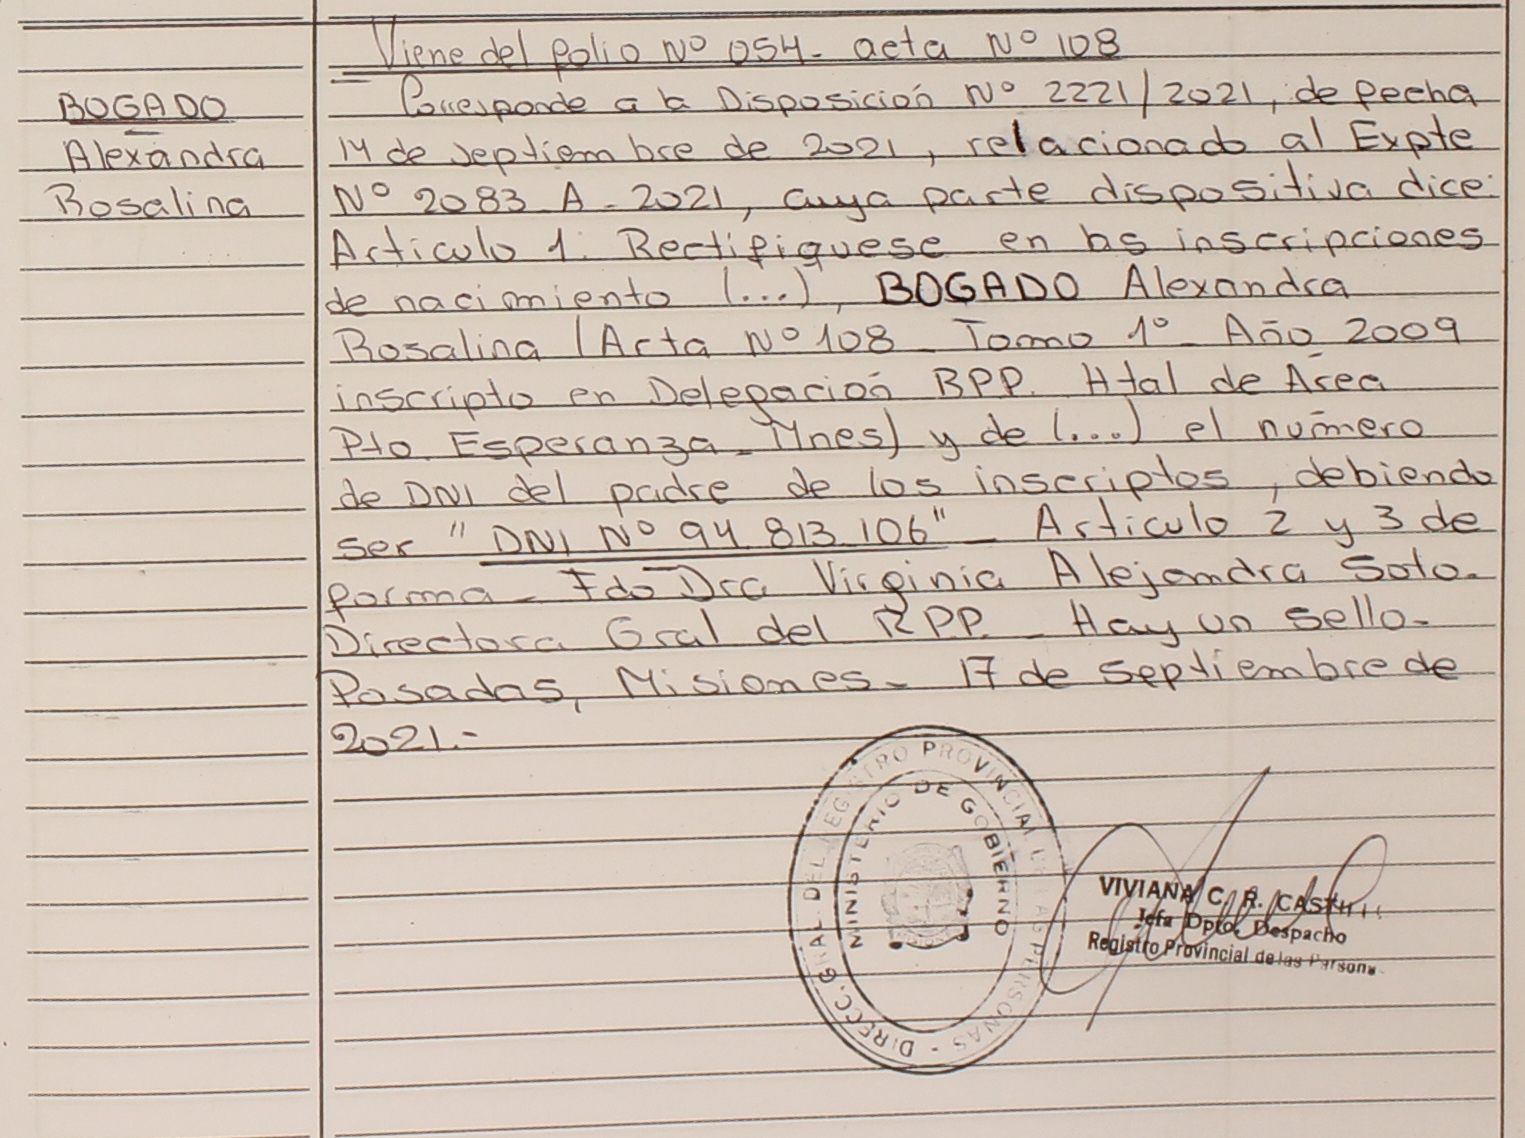 Viene del folio Nº 054- acta Nº 108
BOGADO
Alexandra
Rosalina
Corresponde a la Disposición Nº 2221/2021, de fecha
14 de septiembre de 2021, relacionado al Expte
Nº 2083 A - 2021, cuya parte dispositiva dice:
Articulo 1. Rectifiquese en las inscripciones
de nacimiento (...), BOGADO Alexandra
Rosalina (Acta Nº 108 - Tomo 1º - Año 2009
inscripto en Delegación RPP. Htal de Área
Pto. Esperanza - Mnes) y de (...) el número
de DNI del padre de los inscriptos, debiendo
ser "DNI Nº 94.813.106" - Articulo 2 y 3 de
forma - Fdo Dra Virginia Alejandra Soto.
Directora Gral del RPP. - Hay un sello.
Posadas, Misiones - 17 de septiembre de
2021.-
DIRECC. GRAL. DEL REGISTRO PROVINCIAL DE LAS PERSONAS -
MINISTERIO DE GOBIERNO
VIVIANA C. R.
Jefa Dpto. Despacho
Registro Provincial de las